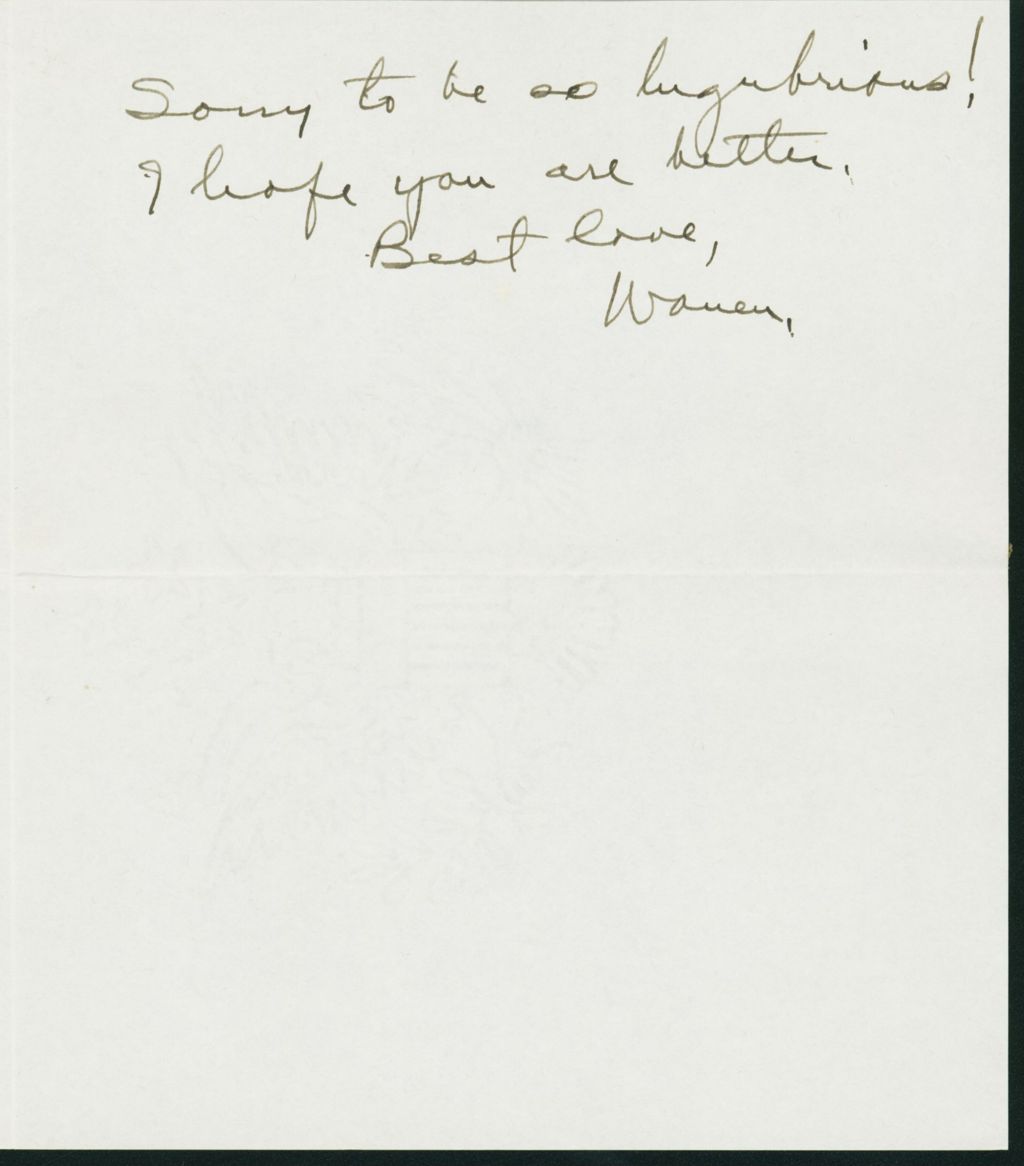 Sorry to be so lugubrious!
I hope you are better.
Best love,
Warren.